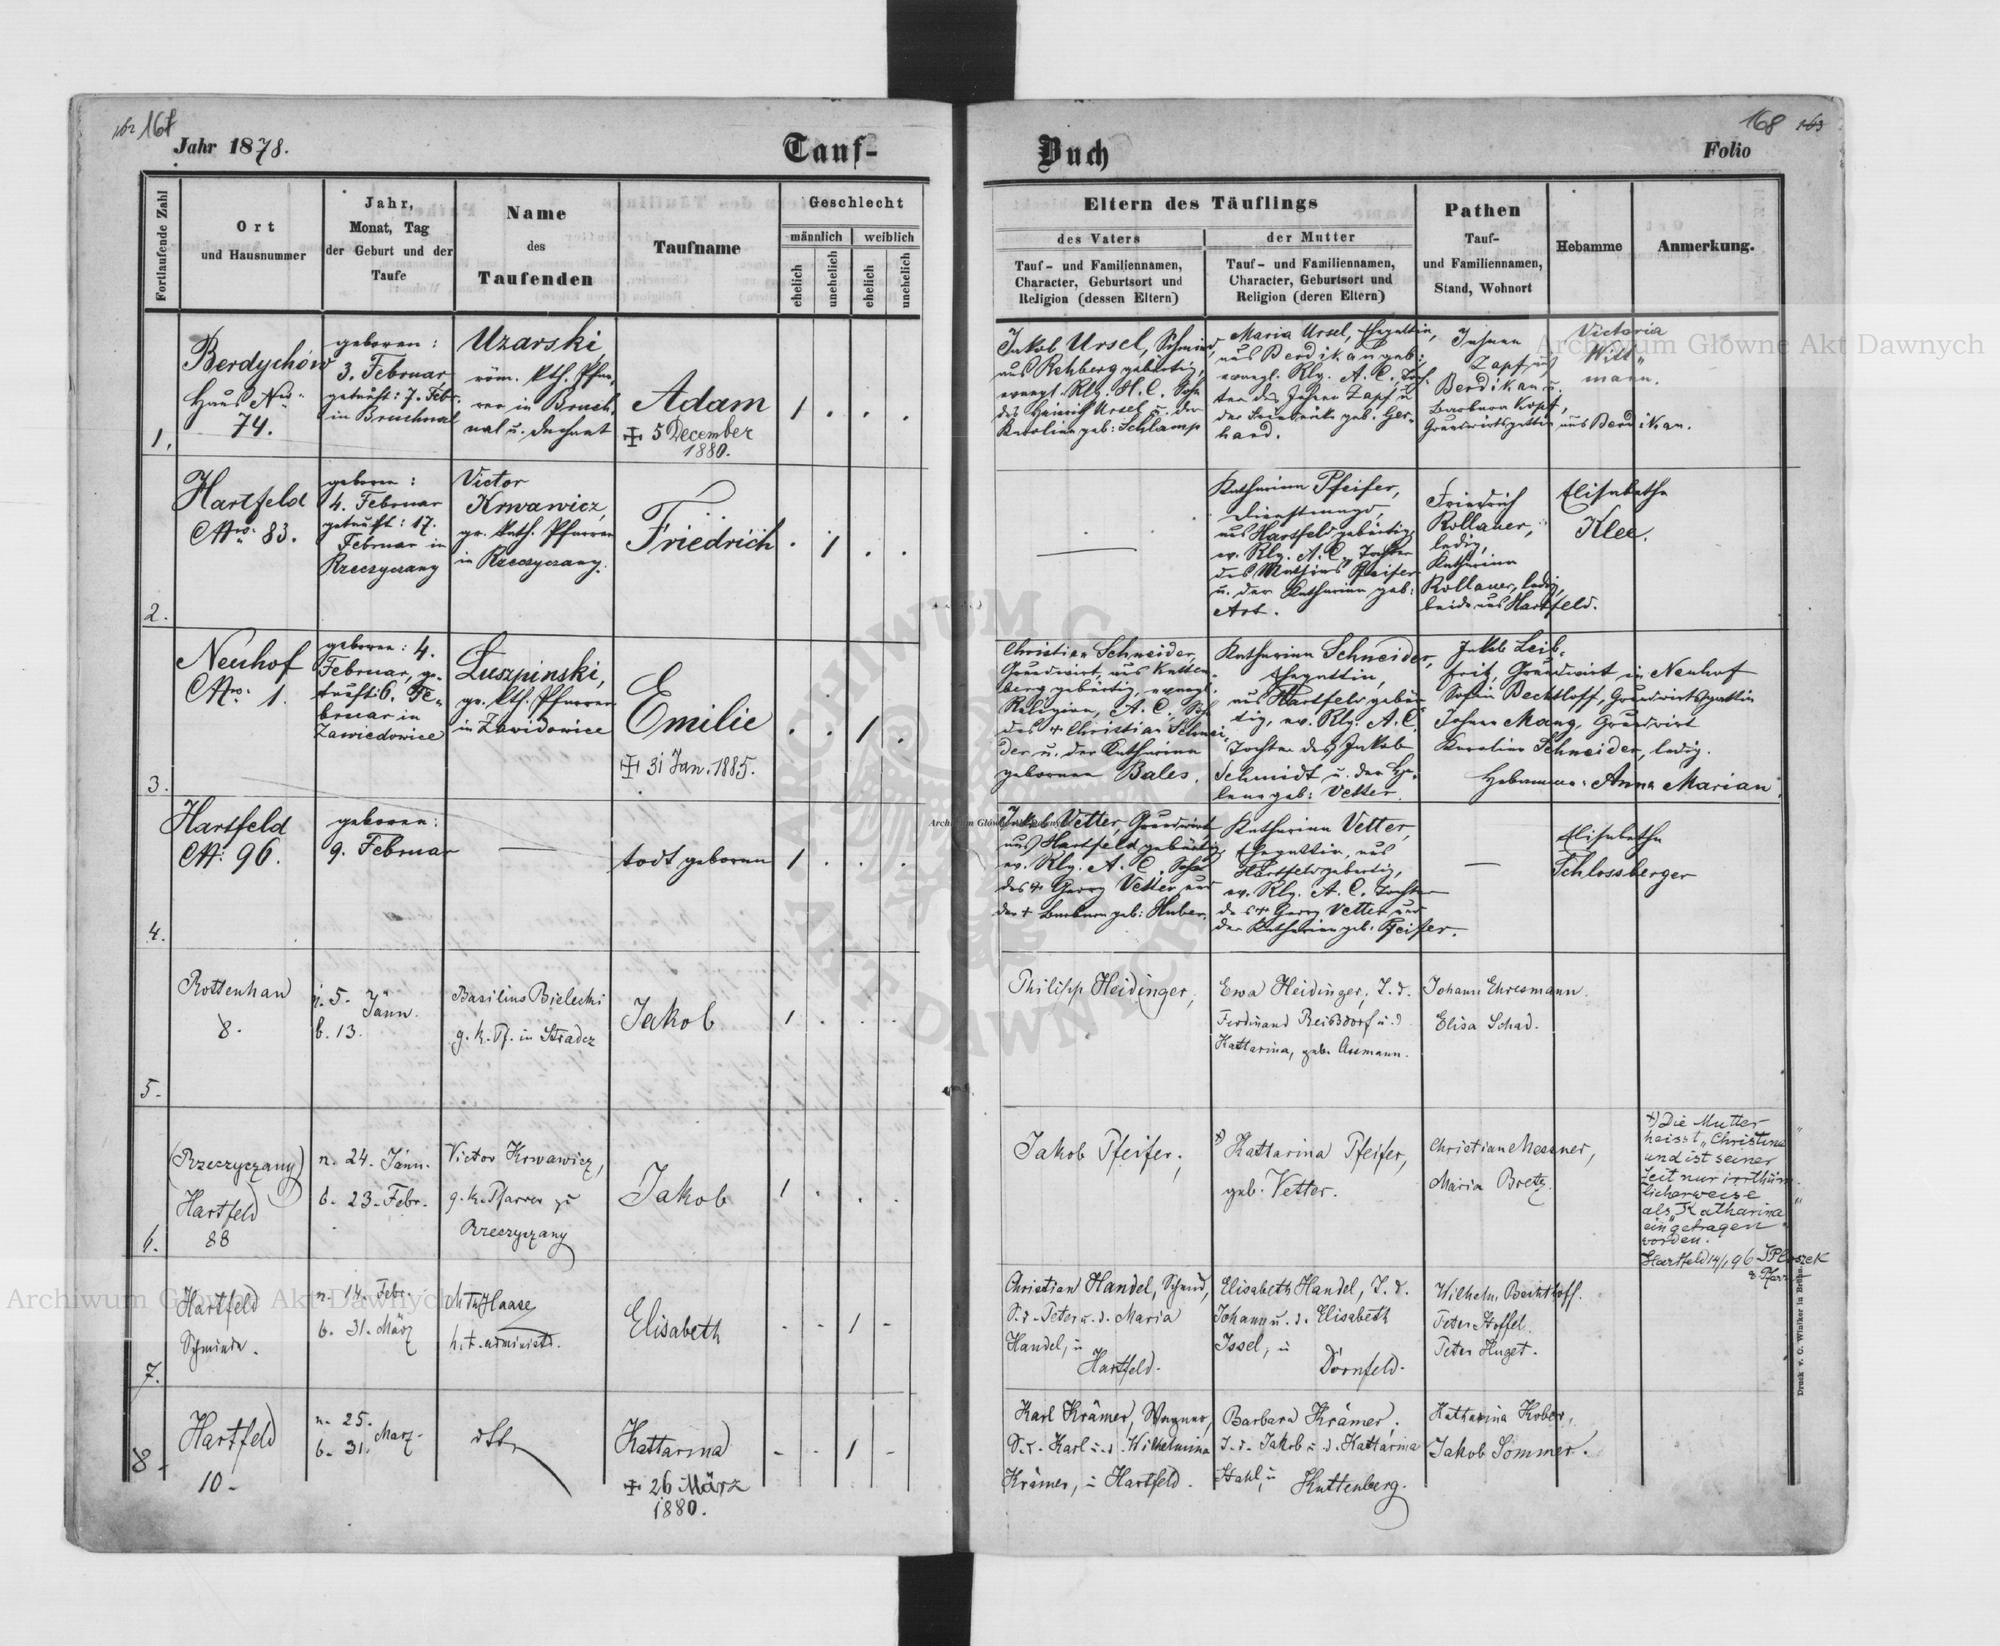 167
Jahr 1878.
Tauf-
Fortlaufende Zahl
Ort
und Hausnummer
Jahr,
Monat, Tag
der Geburt und der
Taufe
Name
des
Taufenden
Taufname
Geschlecht
männlich
weiblich
ehelich
unehelich
ehelich
unehelich
1.
Berdychów
Haus Nro
74.
geboren:
3. Februar
getauft: 7. Febr.
in Bruchnal
Uzarski
röm. kth. Pfar-
rer in Bruch-
nal u. Dechant
Adam
+ 5 December
1880.
1 . . .
2.
Hartfeld
Nro: 83.
geboren:
4. Februar
getauft: 17.
Februar in
Rzeczyczany
Victor
Krwawicz,
gr. kath. Pfarrer
in Rzeczyczany.
Friedrich
. 1 . .
3.
Neuhof
Nro: 1.
geboren: 4.
Februar, ge-
tauft: 6. Fe-
bruar in
Zawiedowice
Luszpinski,
gr. kth. Pfarrer
in Zawidowice
Emilie
+ 31 Jan. 1885.
. . 1 .
4.
Hartfeld
N: 96.
geboren:
9. Februar
—
todt geboren
1 . . .
5.
Rottenhan
8.
n. 5. Jänn.
b. 13.
Basilius Bielecki
g. k. Pf. in Stradcz
Jakob
1 . . .
6.
(Rzeczyczany)
Hartfeld
88
n. 24. Jänn.
b. 23. Febr.
Victor Krwawicz,
g. k. Pfarrer zu
Rzeczyczany
Jakob
1 . . .
7.
Hartfeld
Schmiede.
n. 14. Febr.
b. 31. März
Haase
h. t. administr.
Elisabeth
- - 1 -
8.
Hartfeld
10.
n. 25. März.
b. 31.
dtto
Kattarina
+ 26 März
1880.
- - 1 -
168 163
Buch
Folio
Eltern des Täuflings
des Vaters
der Mutter
Tauf- und Familiennamen,
Character, Geburtsort und
Religion (dessen Eltern)
Tauf- und Familiennamen,
Character, Geburtsort und
Religion (deren Eltern)
Pathen
Tauf-
und Familiennamen,
Stand, Wohnort
Hebamme
Anmerkung.
Jakob Ursel, Schmied,
aus Rehberg gebürtig,
evangl. Rlg. H. C. Sohn
des Heinrich Ursel u. der
Karolina geb: Schlamp
Maria Ursel, Ehegattin,
aus Berdikau geb:
evangl. Rlg. A. C. Toch-
ter des Johann Zapf u
der Friederike geb. Ger-
hard.
Johann
Zapf aus
Berdikau u.
Barbara Kopf,
Grundwirtsgattin aus Berdikau.
Victoria
Will-
mann.
—
Katharina Pfeifer,
Dienstmagd,
aus Hartfeld gebürtig,
ev. Rlg. A. C. Tochter
des Mathias Pfeifer
u. der Katharina geb:
Art.
Friedrich
Rollauer,
ledig,
Katharina
Rollauer, ledig,
beide aus Hartfeld.
Elisabetha
Klee.
Christian Schneider,
Grundwirt, aus Kutten-
berg gebürtig, evangl.
Religion, A. C., Sohn
des + Christian Schnei-
der u. der Katharina
gebornen Bales.
Katharina Schneider,
Ehegattin,
aus Hartfeld gebür-
tig, ev. Rlg. A. C.
Tochter des Jakob
Schmidt u. der He-
lena geb: Vetter.
Jakob Leib-
frit, Grundwirt in Neuhof
Sofia Bechtloff, Grundwirtsgattin
Johann Mang, Grundwirt
Karolina Schneider, ledig.
Hebamme: Anna Marian.
Jakob Vetter, Grundwirt,
aus Hartfeld gebürtig,
ev. Rlg. A. C. Sohn
des + Georg Vetter und
der + Barbara geb: Huber.
Katharina Vetter,
Ehegattin, aus
Hartfeld gebürtig,
ev. Rlg. A. C. Tochter
des + Georg Vetter und
der Katharina geb. Pfeifer.
—
Elisabetha
Schlossberger
Philipp Heidinger,
Ewa Heidinger, T. d.
Ferdinand Reißdorf u. d.
Kattarina, geb. Assmann.
Johann Ehresmann.
Elisa Schad.
Jakob Pfeifer,
+) Kattarina Pfeifer,
geb. Vetter.
Christian Messner,
Maria Bretz.
+) Die Mutter
heisst „Christina"
und ist seiner
Zeit nur irrthüm-
licherweise
als „Katharina"
eingetragen
worden.
Hartfeld 14/1 96
Christian Handel, Schmied,
S. d. Peter u. d. Maria
Handel, in
Hartfeld.
Elisabeth Handel, T. d.
Johann u. d. Elisabeth
Issel, in
Dörnfeld.
Wilhelm Bechthoff.
Peter Stoffel.
Peter Huget.
Karl Krämer, Wagner,
S. d. Karl u. d. Wilhelmina
Krämer, in Hartfeld.
Barbara Krämer,
T. d. Jakob u. d. Kattarina
Stahl, in
Kuttenberg.
Katharina Kober,
Jakob Sommer.
Druck v. C. Winiker in Brünn.
Archiwum Główne Akt Dawnych
Archiwum Główne Akt Dawnych
Archiwum Główne Akt Dawnych